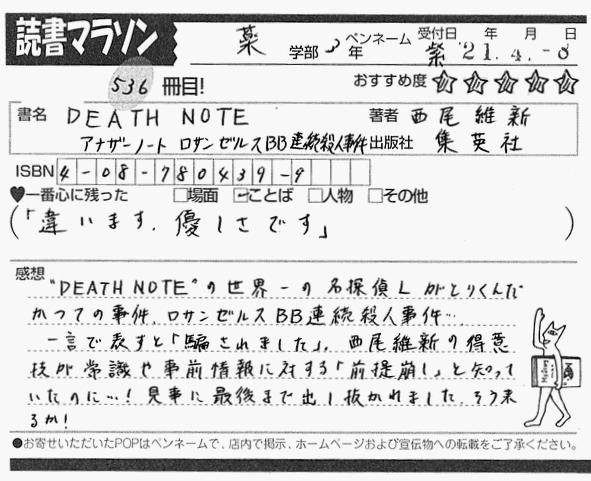 読書マラソン
薬 学部 2年 ペンネーム 紫 受付日 '21年 4月 -8日
536 冊目! おすすめ度 ☆☆☆☆☆
書名 DEATH NOTE 著者 西尾維新
アナザーノート ロサンゼルスBB連続殺人事件 出版社 集英社
ISBN 4-08-780439-9
♥一番心に残った □場面 ☑ことば □人物 □その他
(「違います.優しさです」)
感想 "DEATH NOTE"の世界一の名探偵Lがとりくんだ
かつての事件、ロサンゼルスBB連続殺人事件…
一言で表すと「騙されました」。西尾維新の得意
技が常識や事前情報に対する「前提崩し」と知って
いたのに…!見事に最後まで出し抜かれました そう来
るか!
●お寄せいただいたPOPはペンネームで、店内で掲示、ホームページおよび宣伝物への転載をご了承ください。